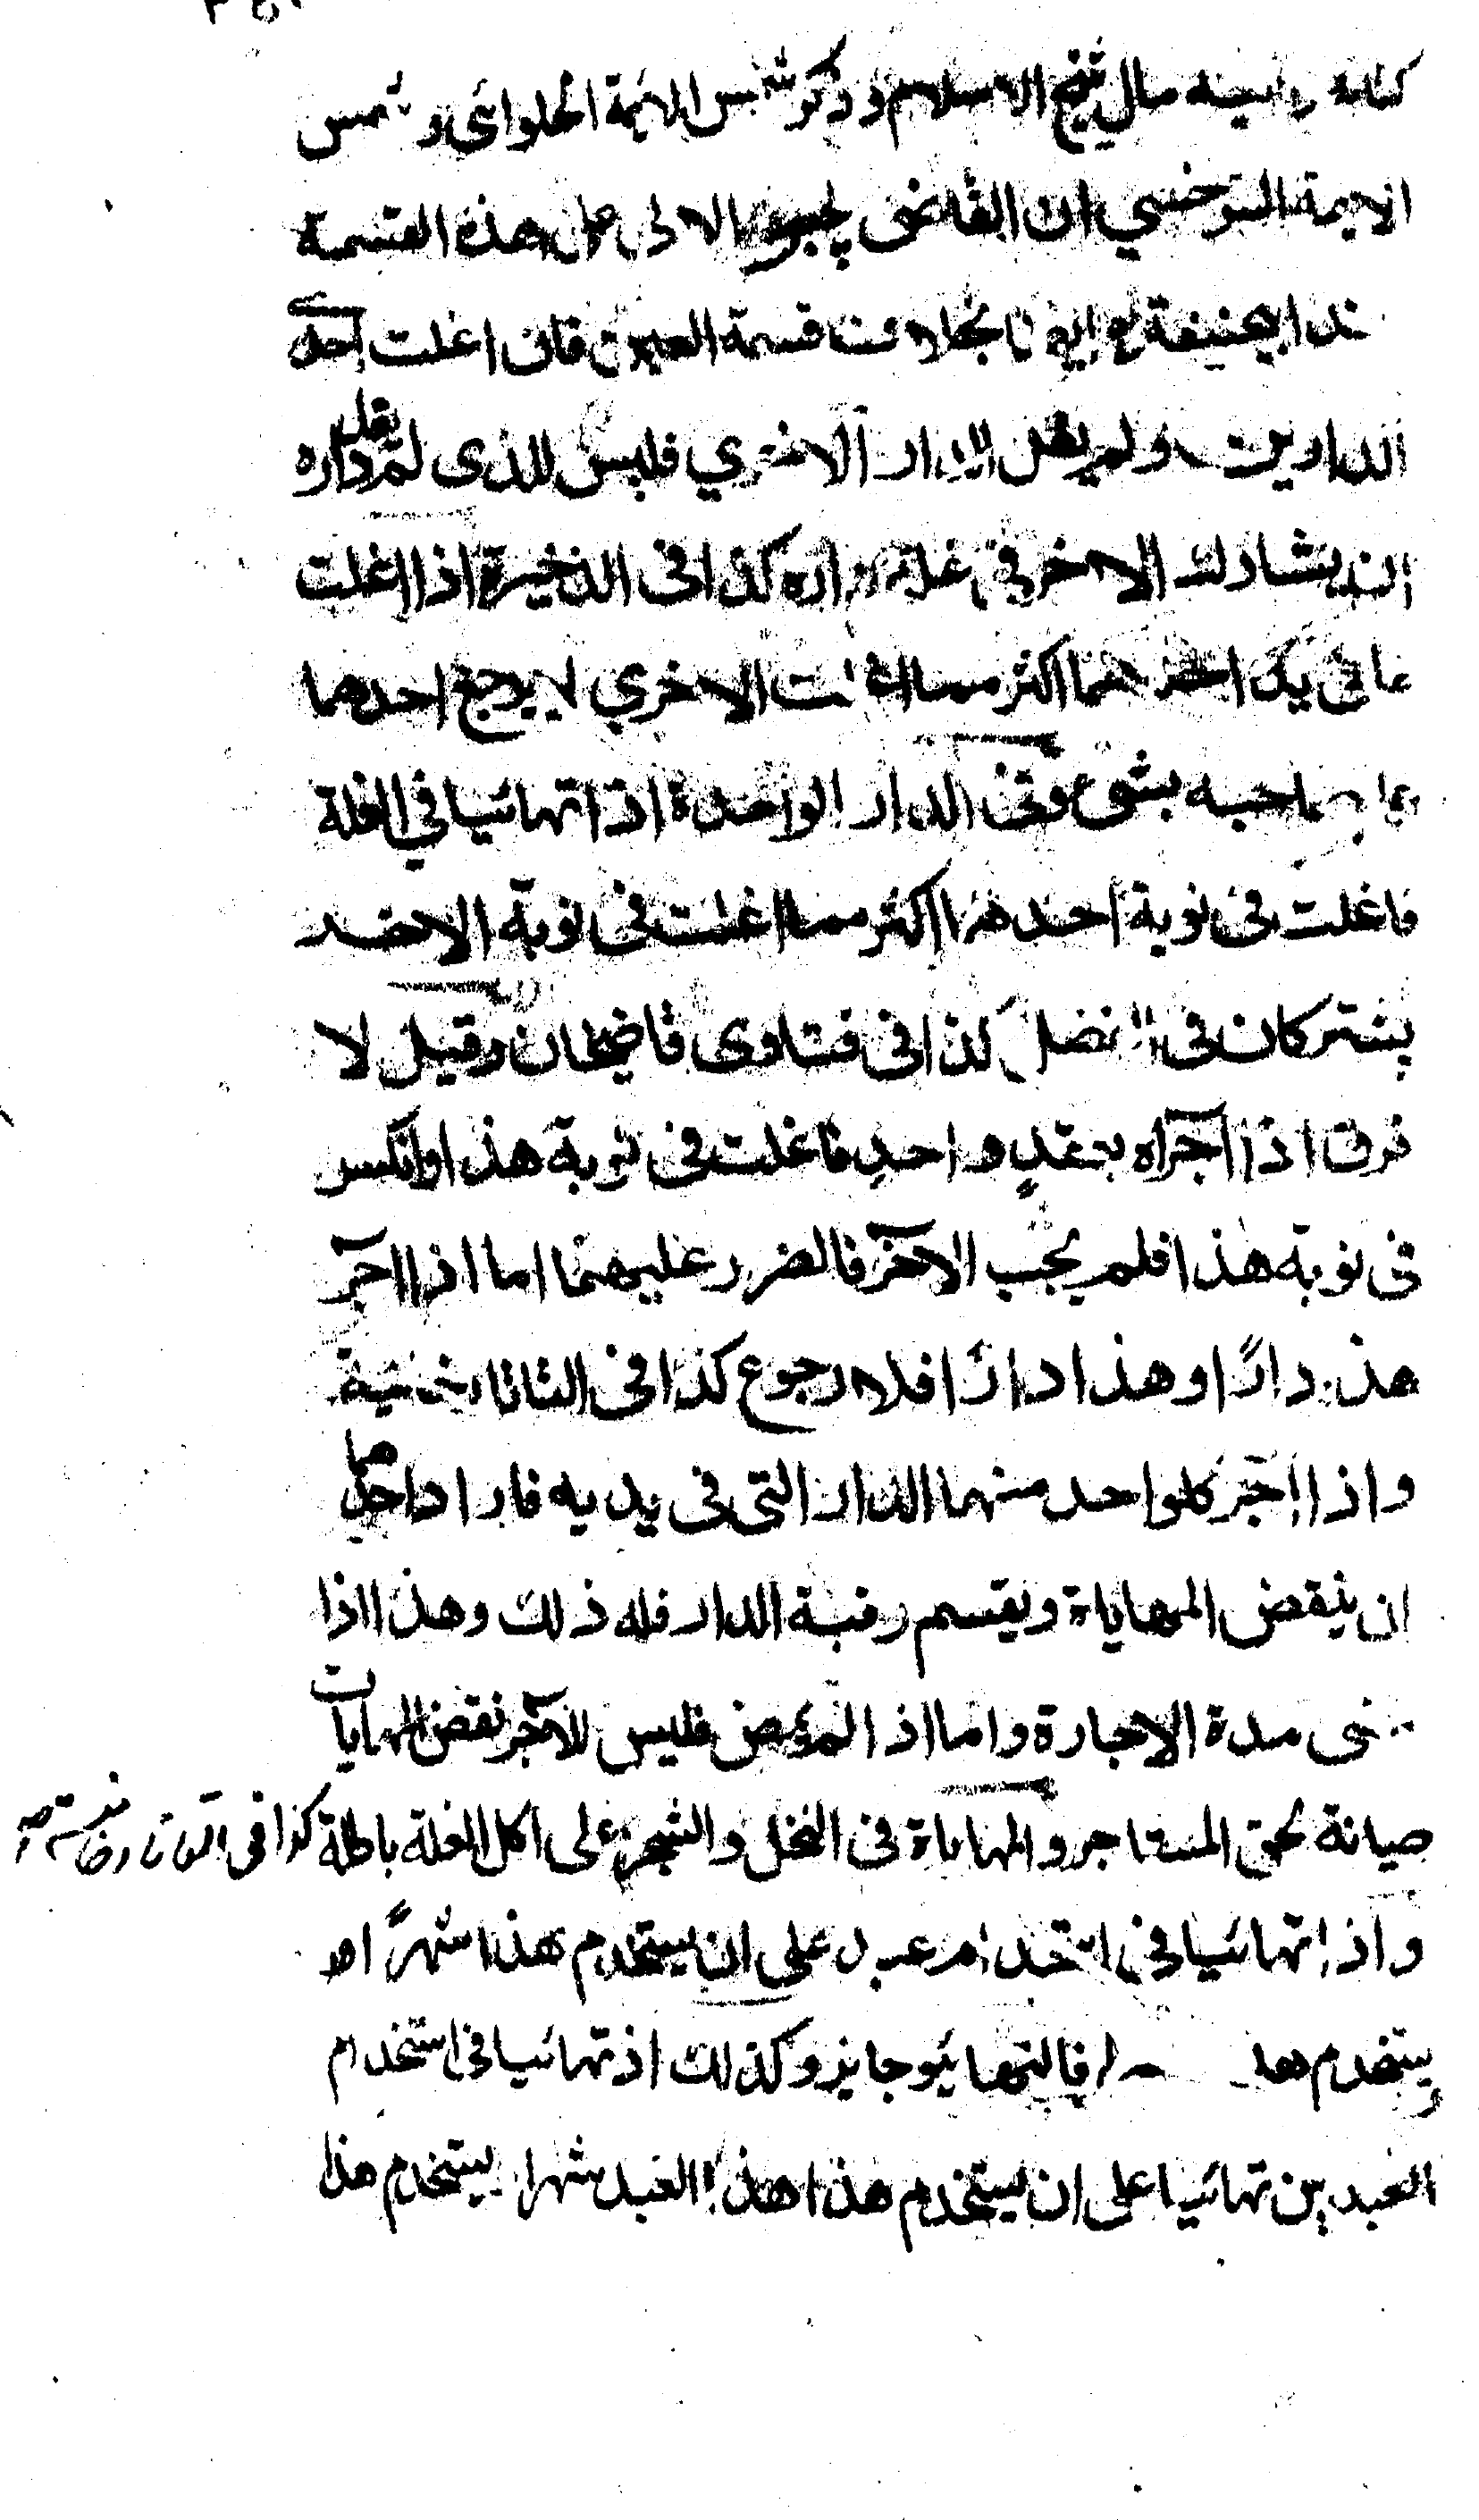 كتابه واليه مال شيخ الاسلام وذكر شمس الائمة الحلوائى وشمس
الايمة السرخسي ان القاضى يجبر الابى على هذه القسمة
ند ابيحنيفة رح ايضا بخلاف قسمة العبيد فان اغلت احدى
الدارين ولم يغل الدار الاخري فليس للذى لم تغل داره
ان يشارك الاخر في غلة داره كذا فى الذخيرة اذا اغلت
ما فى يد احدهما اكثر مما اغلت الاخري لا يرجع احدهما
على صاحبه بشئ وفى الدار الواحدة اذا تهائيا في الغلة
فاغلت فى نوبة احدهما اكثر مما اغلت فى نوبة الاخر
يشتركان فى الفضل كذا فى فتاوى قاضيخان وقيل لا
فرق اذا آجراه بعقدٍ واحدٍ فاغلت فى نوبة هذا وانكسر
فى نوبة هذا فلم يجب الآخر فالضرر عليهما اما اذا اآجر
هذا دارًا وهذا دارًا فلا رجوع كذا فى التاتارخانية
واذا اآجر كلواحد منهما الدار التى فى يديه فاراد احدهما
ان ينقض المهاياة ويقسم رقبة الدار فله ذلك وهذا اذا
مضى مدة الاجارة واما اذا لم يمض فليس للآخر نقض المهايات
صيانة لحق المستاجر والمهاياة فى النخل والشجر على اكل الغلة باطلة كذا فى التاتارخانية صح
واذا تهائيا في استخدام عبد على ان يستخدم هذا شهرًا و
يستخدم هذا فالتهايئو جايز وكذلك اذ تهائيا فى استخدام
العبدين تهائيا على ان يستخدم هذا هذا العبد شهرا ويستخدم هذا